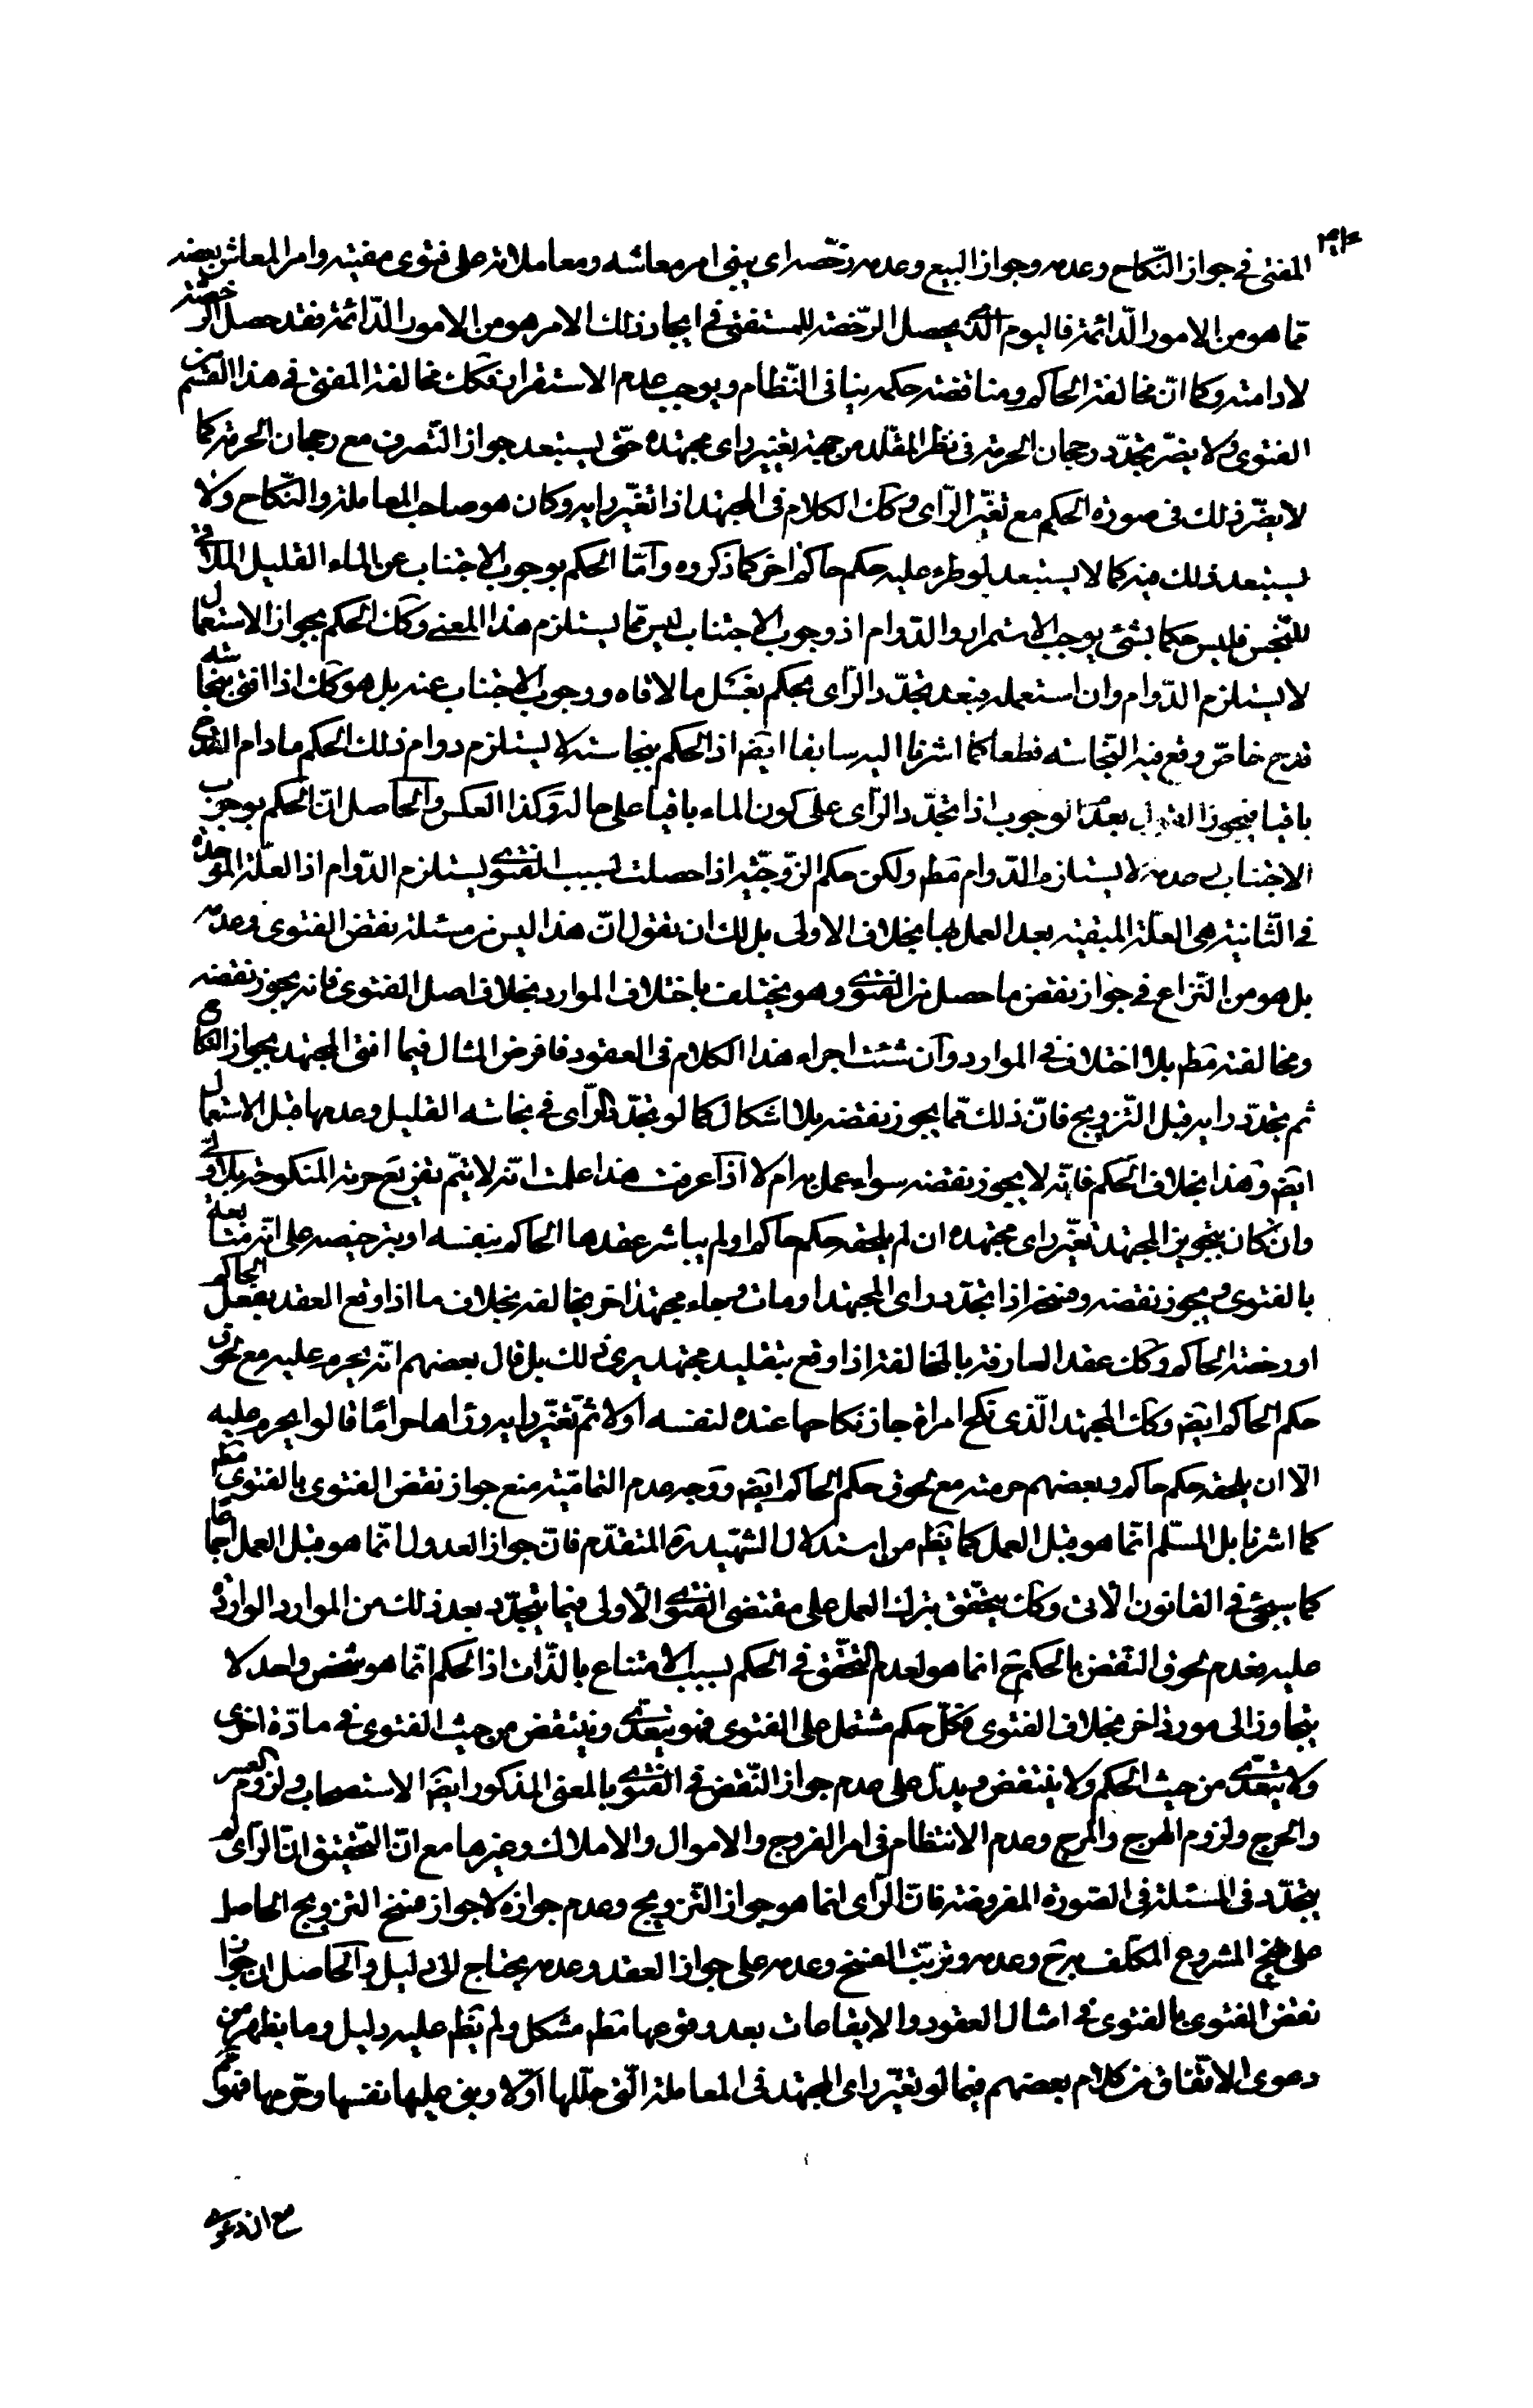 المفتى فى جواز النّكاح وعدمه وجواز البيع وعدمه رخّصه اى يبنى امر معاشه ومعاملاته على فتوى مفتيه وامر المعاش بعضه
ممّا هو من الامور الدّائمة فاليوم الّذى يحصل الرّخصة للمستفتى فى ايجاد ذلك الامر هو من الامور الدّائمة فقد حصل الرّخصة
لادامته وكما انّ مخالفة الحاكم ومناقضة حكمه ينافى النّظام ويوجب عدم الاستقرار فكك مخالفة المفتى فى هذا القسم من
الفتوى ولا يضرّ تجدّد رجحان الحرمة فى نظر المقلّد من جهة تغيّر راى مجتهده حتّى يستبعد جواز التّصرف مع رجحان الحرمة كما
لا يضرّ ذلك فى صورة الحكم مع تغيّر الرّأى وكك الكلام فى المجتهد اذا تغيّر رايه وكان هو صاحب المعاملة والنّكاح ولا
يستبعد ذلك منه كما لا يستبعد لو طرء عليه حكم حاكم اخر كما ذكروه وامّا الحكم بوجوب الاجتناب عن الماء القليل الملاقى
للنّجس فليس حكما بشئ يوجب الاستمرار والدّوام اذ وجوب الاجتناب ليس ممّا يستلزم هذا المعنى وكك الحكم بجواز الاستعمال
لا يستلزم الدّوام وان استعمله فبعد تجدّد الرّاى يحكم بغسل ما لاقاه ووجوب الاجتناب عنه بل هو كك اذا افتى بنجاسة
قدح خاصّ وقع فيه النّجاسة قطعا كما اشرنا اليه سابقا ايضا اذ الحكم بنجاسته لا يستلزم دوام ذلك الحكم ما دام القدح
باقيا فيجوز بعد الوجوب اذا تجدّد الرّاى على كون الماء باقيا على حاله وكذا العكس والحاصل انّ الحكم بوجوب
الاجتناب وعدمه لا يستلزم الدّوام مطم ولكن حكم الزّوجيّة اذا حصلت بسبب الفتوى يستلزم الدّوام اذ العلّة الموجدة
فى الثّانية هى العلّة المبقية بعد العمل بها بخلاف الاولى بل لك ان تقول انّ هذا ليس من مسئلة نقض الفتوى وعدمه
بل هو من النّزاع فى جواز نقض ما حصل من الفتوى وهو يختلف باختلاف الموارد بخلاف اصل الفتوى فانه يجوز نقضه
ومخالفته مطم بلا اختلاف فى الموارد وان شئت اجراء هذا الكلام فى العقود فافرض المثال فيما افتى المجتهد بجواز النكاح
ثم تجدّد رايه قبل التّزويج فانّ ذلك ممّا يجوز نقضه بلا اشكال كما لو تجدّد الرّاى فى نجاسة القليل وعدمها قبل الاستعمال
ايضا وهذا بخلاف الحكم فانّه لا يجوز نقضه سواء عمل به ام لا اذا عرفت هذا علمت انّه لا يتمّ تفريع حرمة المنكوحة بلا ولى
وان كان بتجويز المجتهد بتغيّر راى مجتهده ان لم يلحقه حكم حاكم او لم يباشر عقدها الحاكم بنفسه او بترخيصه على انّه متابعة
بالفتوى ويجوز نقضه وفسخه اذا تجدّد راى المجتهد او مات وجاء مجتهد اخر يخالفه بخلاف ما اذا وقع العقد بفعل الحاكم
او رخصة الحاكم وكك عقد العارفة بالمخالفة اذا وقع بتقليد مجتهد يرى ذلك بل قال بعضهم انّه يحرم عليه مع لحوق
حكم الحاكم ايضا وكك المجتهد الّذى نكح امراة جاز نكاحها عنده لنفسه اولا ثمّ تغيّر رايه ورأها حراما قالوا يحرم عليه
الّا ان يلحقه حكم حاكم وبعضهم حرمته مع لحوق حكم الحاكم ايضا ووجه عدم التماميّة منع جواز نقض الفتوى بالفتوى مطم
كما اشرنا بل المسلّم انّما هو قبل العمل كما يظهر من استدلال الشّهيد ره المتقدّم فانّ جواز العدول انّما هو قبل العمل اجماعا
كما سيجئ فى القانون الاتى وكك يتحقّق بترك العمل على مقتضى الفتوى الاولى فيما يتجدّد بعد ذلك من الموارد الواردة
عليه فعدم لحوق النّقض بالحكم ح انما هو لعدم التحقّق فى الحكم بسبب الامتناع بالذّات اذ الحكم انّما هو شخص واحد لا
يتجاوز الى مورد اخر بخلاف الفتوى فكلّ حكم مشتمل على الفتوى فهو يتعدّى وينتقض من حيث الفتوى فى مادّة اخرى
ولا يتعدّى من حيث الحكم ولا ينتقض ويدلّ على عدم جواز النّقض فى الفتوى بالمعنى المذكور ايضا الاستصحاب ولزوم العسر
والحرج ولزوم الهرج والمرج وعدم الانتظام فى امر الفروج والاموال والاملاك وغيرها مع انّ التّحقيق انّ الرّاى لم
يتجدّد فى المسئلة فى الصّورة المفروضة فانّ الرّاى انما هو جواز التّزويج وعدم جوازه لا جواز فسخ التّزويج الحاصل
على نهج المشروع المكلّف به ح وعدمه وترتّب الفسخ وعدمه على جواز العقد وعدمه يحتاج الى دليل والحاصل ان جواز
نقض الفتوى بالفتوى فى امثال العقود والايقاعات بعد وقوعها مطم مشكل ولم يظهر عليه دليل وما يظهر من
دعوى الاتّفاق من كلام بعضهم فيما لو تغيّر راى المجتهد فى المعاملة الّتى حلّلها اوّلا وبنى عليها نفسها وحرّمها